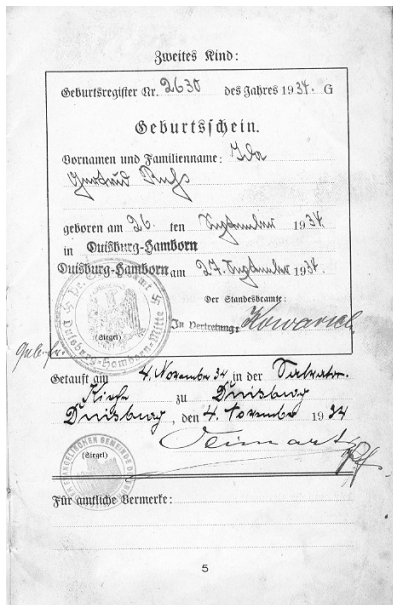 Zweites Kind:
Geburtsregister Nr. 2630 des Jahres 1934. G
Geburtsschein.
Vornamen und Familienname: Ida
Gertrud
geboren am 26. ten September 1934
in Duisburg-Hamborn
Duisburg-Hamborn am 27. September 1934.
Der Standesbeamte:
(Siegel)
In Vertretung:
Getauft am 4. November 34 in der Salvator-
Kirche zu Duisburg
Duisburg, den 4. November 1934
(Siegel)
Für amtliche Vermerke:
5